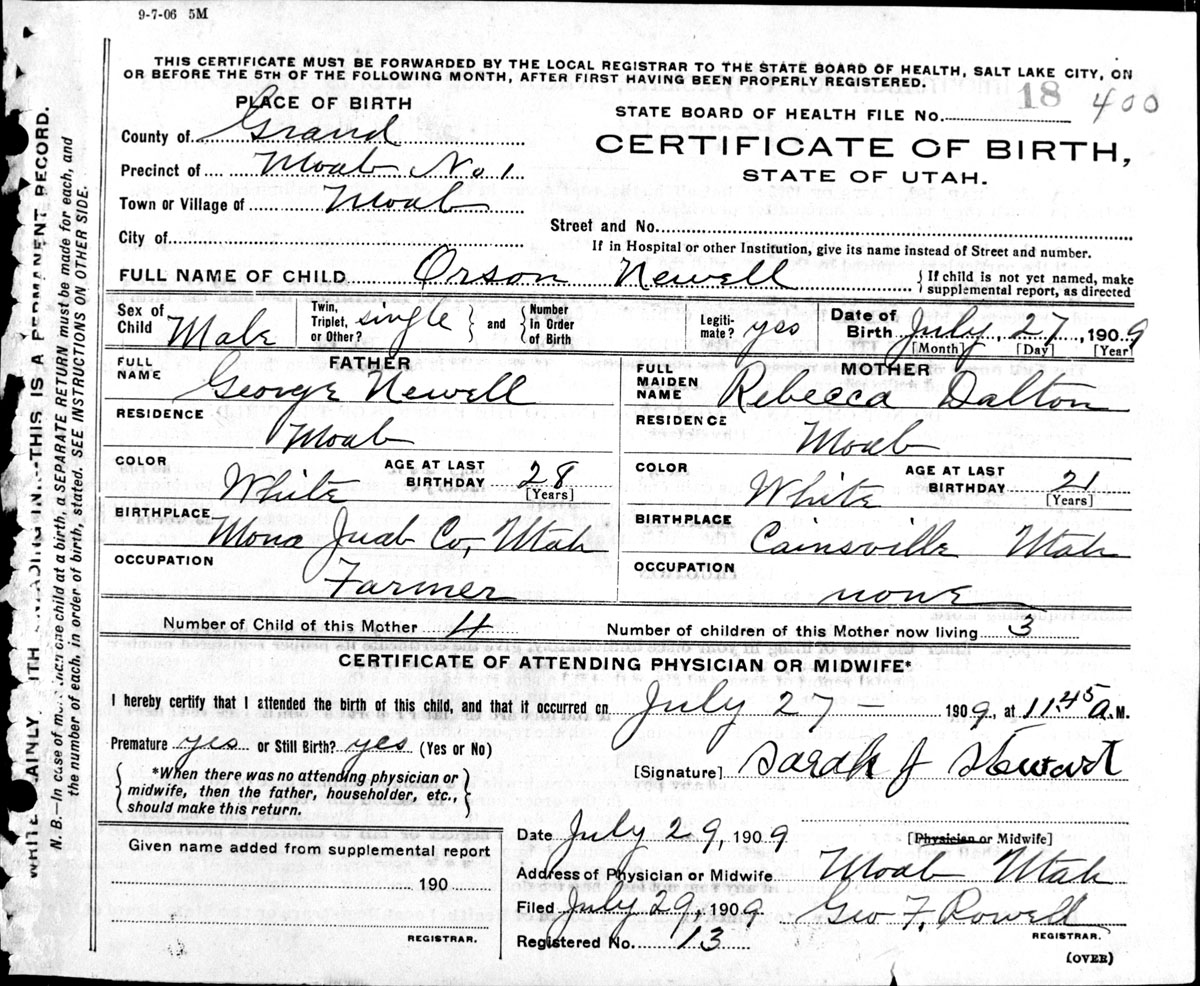 9-7-06 5M
THIS CERTIFICATE MUST BE FORWARDED BY THE LOCAL REGISTRAR TO THE STATE BOARD OF HEALTH, SALT LAKE CITY, ON
OR BEFORE THE 5TH OF THE FOLLOWING MONTH, AFTER FIRST HAVING BEEN PROPERLY REGISTERED.
PLACE OF BIRTH
County of Grand
Precinct of Moab No. 1
Town or Village of Moab
City of
STATE BOARD OF HEALTH FILE No. 18 400
CERTIFICATE OF BIRTH,
STATE OF UTAH.
Street and No.
If in Hospital or other Institution, give its name instead of Street and number.
FULL NAME OF CHILD Orson Newell { If child is not yet named, make
supplemental report, as directed
Sex of Child Male
Twin, Triplet, or Other? single } and { Number in Order of Birth
Legitimate? yes
Date of Birth July, 27, 1909
[Month] [Day] [Year]
FATHER
FULL NAME George Newell
RESIDENCE
Moab
COLOR White AGE AT LAST BIRTHDAY 28
[Years]
BIRTHPLACE
Mona Juab Co, Utah
OCCUPATION
Farmer
MOTHER
FULL MAIDEN NAME Rebecca Dalton
RESIDENCE
Moab
COLOR White AGE AT LAST BIRTHDAY 21
[Years]
BIRTHPLACE
Cainsville Utah
OCCUPATION
none
Number of Child of this Mother 4 Number of children of this Mother now living 3
CERTIFICATE OF ATTENDING PHYSICIAN OR MIDWIFE*
I hereby certify that I attended the birth of this child, and that it occurred on July 27 — 1909, at 11.45 A.M.
Premature yes or Still Birth? yes (Yes or No)
{ *When there was no attending physician or
midwife, then the father, householder, etc.,
should make this return. }
[Signature] Sarah J Stewart
[Physician or Midwife]
Given name added from supplemental report
190
REGISTRAR.
Date July 29, 1909
Address of Physician or Midwife Moab Utah
Filed July 29, 1909 Geo F, Rowell
REGISTRAR.
Registered No. 13
(OVER)
THIS IS A PERMANENT RECORD.
N. B.—In case of more than one child at a birth, a SEPARATE RETURN must be made for each, and
the number of each, in order of birth, stated. SEE INSTRUCTIONS ON OTHER SIDE.